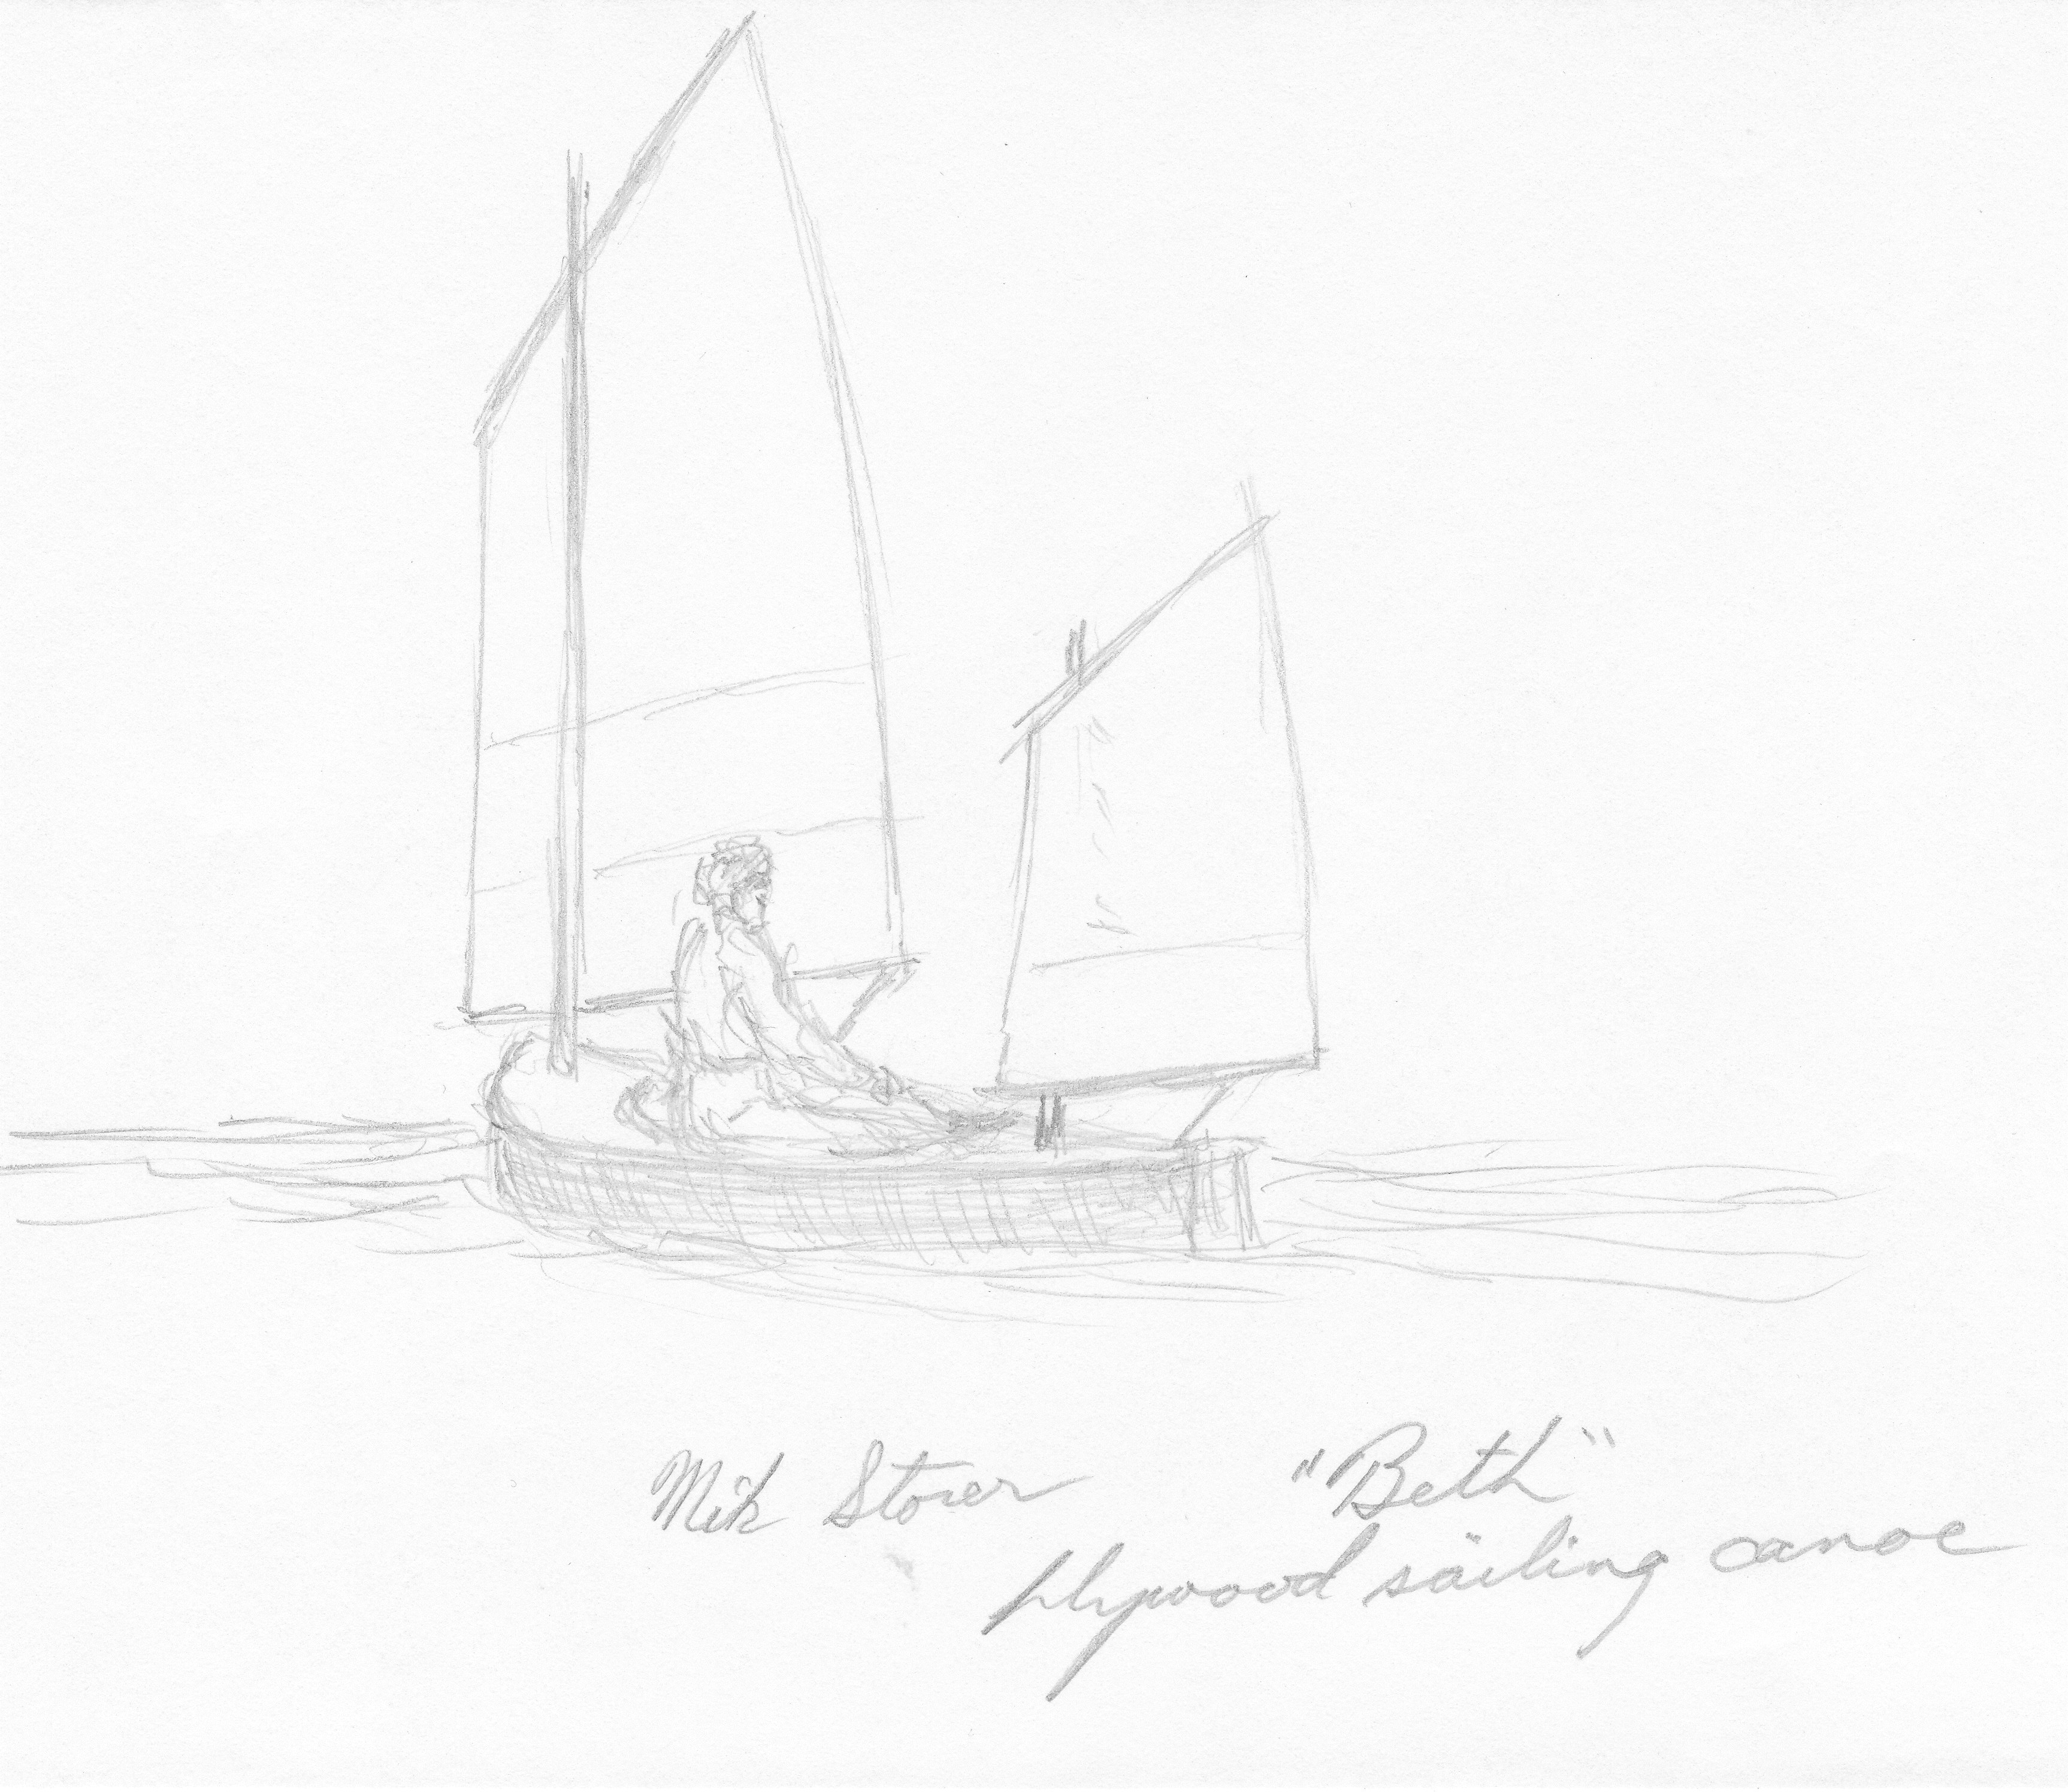 Mik Storer
"Beth"
plywood sailing canoe